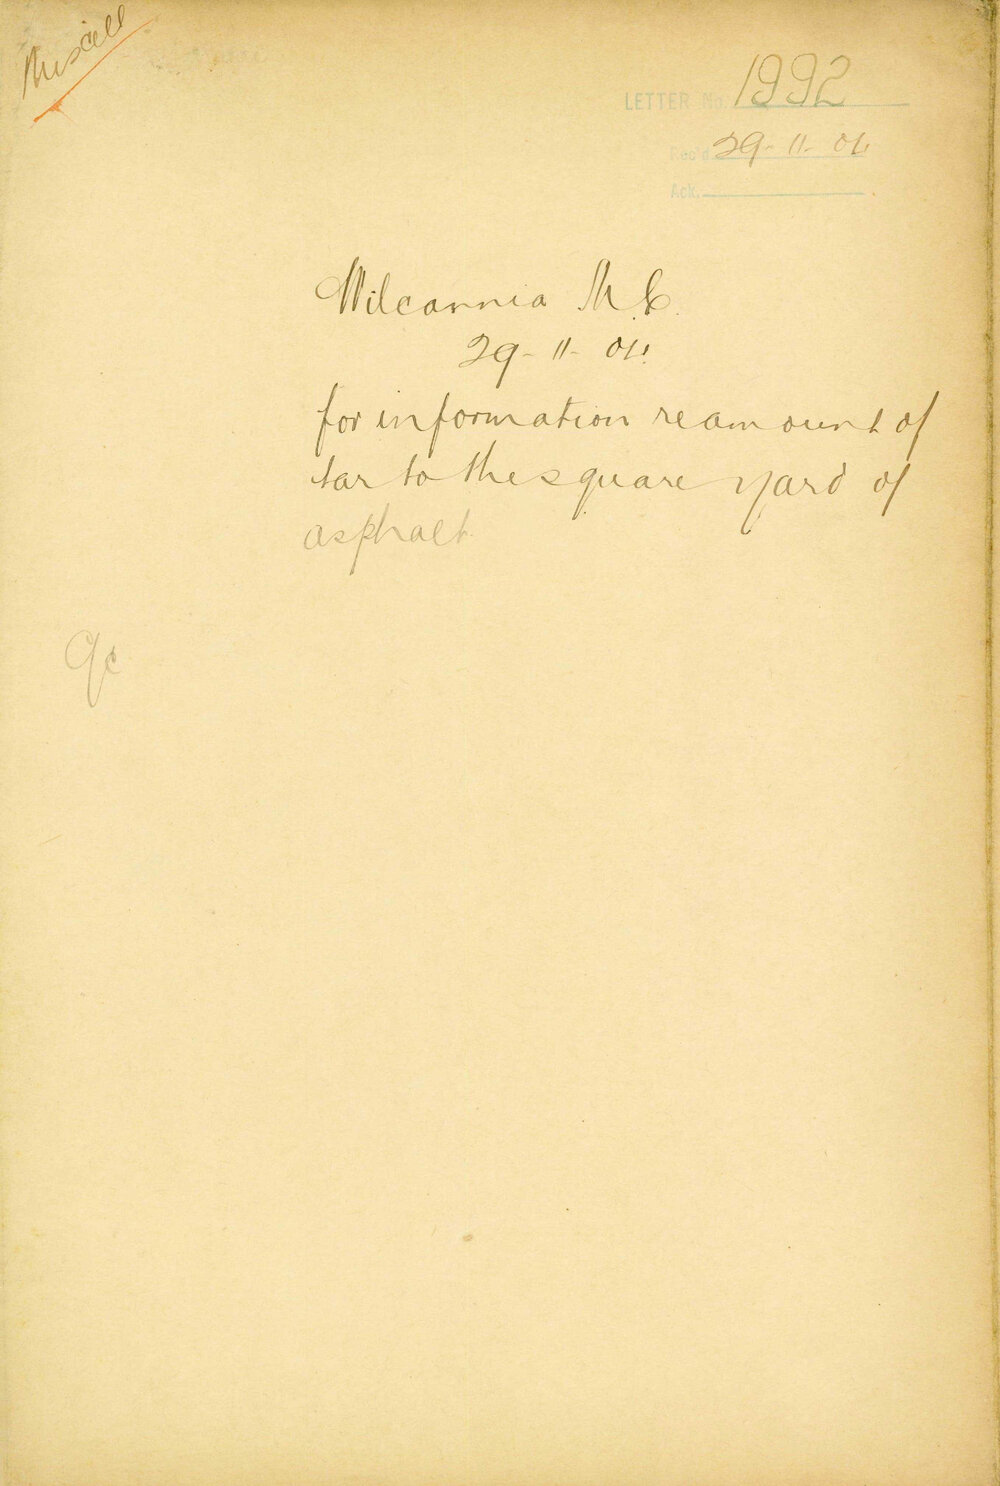 Miscell
LETTER No. 1992
Rec'd 29-11-04
Ack.
Wilcannia M.C.
29-11-04
for information re amount of
tar to the square yard of
asphalt